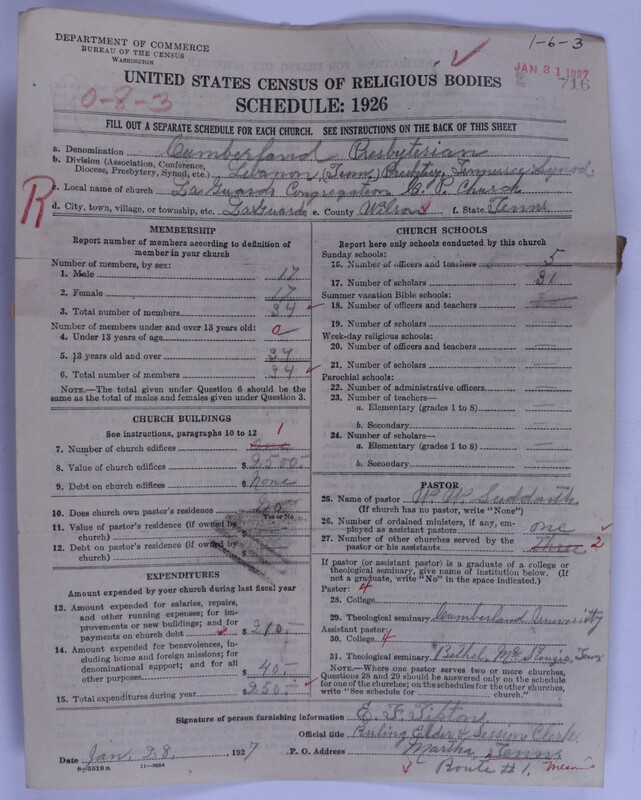 DEPARTMENT OF COMMERCE
BUREAU OF THE CENSUS
WASHINGTON
1-6-3
JAN 31 1927
716
UNITED STATES CENSUS OF RELIGIOUS BODIES
SCHEDULE: 1926
0-8-3
FILL OUT A SEPARATE SCHEDULE FOR EACH CHURCH. SEE INSTRUCTIONS ON THE BACK OF THIS SHEET
a. Denomination Cumberland Presbyterian
b. Division (Association, Conference, Diocese, Presbytery, Synod, etc.) Lebanon (Tenn) Presbytery, Tennessee Synod.
R
c. Local name of church LaGuardo Congregation C. P. Church
d. City, town, village, or township, etc. LaGuardo e. County Wilson f. State Tenn
MEMBERSHIP
Report number of members according to definition of
member in your church
Number of members, by sex:
1. Male 17
2. Female 17
3. Total number of members 34
Number of members under and over 13 years old:
4. Under 13 years of age 0
5. 13 years old and over 34
6. Total number of members 34
NOTE.—The total given under Question 6 should be
the same as the total of males and females given under Question 3.
CHURCH BUILDINGS
See instructions, paragraphs 10 to 12
7. Number of church edifices 1
8. Value of church edifices $ 2500.-
9. Debt on church edifices $ None
10. Does church own pastor's residence no
Yes or No
11. Value of pastor's residence (if owned by
church) $
12. Debt on pastor's residence (if owned by
church) $
EXPENDITURES
Amount expended by your church during last fiscal year
13. Amount expended for salaries, repairs,
and other running expenses; for im-
provements or new buildings; and for
payments on church debt $ 210.-
14. Amount expended for benevolences, in-
cluding home and foreign missions; for
denominational support; and for all
other purposes $ 40.-
15. Total expenditures during year $ 250.-
CHURCH SCHOOLS
Report here only schools conducted by this church
Sunday schools:
16. Number of officers and teachers 5
17. Number of scholars 31
Summer vacation Bible schools:
18. Number of officers and teachers
19. Number of scholars
Week-day religious schools:
20. Number of officers and teachers
21. Number of scholars
Parochial schools:
22. Number of administrative officers
23. Number of teachers—
a. Elementary (grades 1 to 8)
b. Secondary
24. Number of scholars—
a. Elementary (grades 1 to 8)
b. Secondary
PASTOR
25. Name of pastor W. W. Suddarth
(If church has no pastor, write "None")
26. Number of ordained ministers, if any, em-
ployed as assistant pastors one
27. Number of other churches served by the
pastor or his assistants three 2
If pastor (or assistant pastor) is a graduate of a college or
theological seminary, give name of institution below. (If
not a graduate, write "No" in the space indicated.)
Pastor:
28. College
29. Theological seminary Cumberland University
Assistant pastor:
30. College
31. Theological seminary Bethel, McKenzie, Tenn
NOTE.—Where one pastor serves two or more churches,
Questions 28 and 29 should be answered only on the schedule
for one of the churches; on the schedules for the other churches,
write "See schedule for church."
Signature of person furnishing information E. F. Tipton
Official title Ruling Elder & Session Clerk
Date Jan. 28, 1927 P. O. Address Martha, Tenn
Route #1,
8-5518a 11-9884